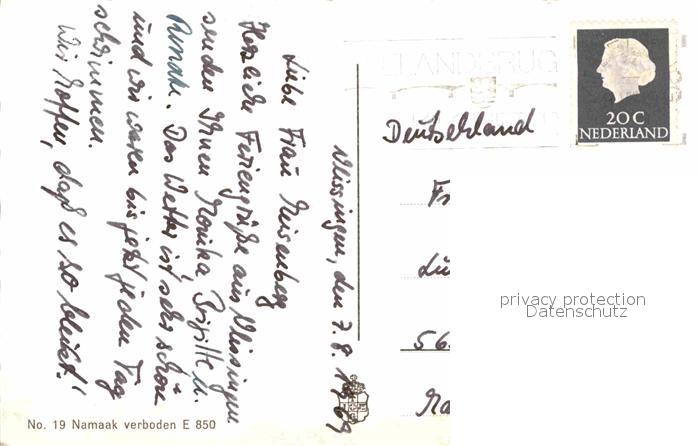 Vlissingen, den 7. 8. 1969
Liebe Frau Meisenberg
Herzliche Feriengrüße aus Vlissingen
senden Ihnen Monika, Brigitte u.
Renate. Das Wetter ist sehr schön
und wir waren bis jetzt jeden Tag
schwimmen.
Wir hoffen, daß es so bleibt!
No. 19 Namaak verboden E 850
ZEELANDBRUG
20 C
NEDERLAND
Deutschland
Fr
Lü
56
Ra
privacy protection
Datenschutz